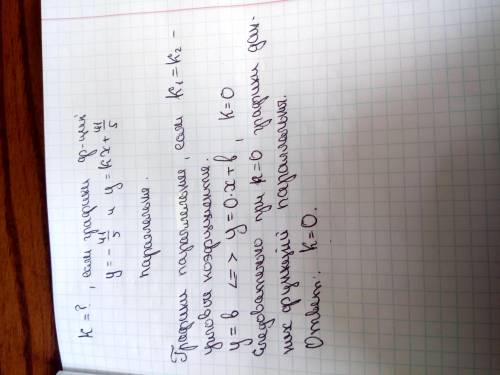 к = ?, если графики ф-ций
y = -41/5 и y = кx + 41/5
параллельны.
Графики параллельные, если к₁ = к₂ -
угловые коэффициенты.
y = в <=> y = 0·x + в, к = 0
Следовательно при к = 0 графики дан-
них функций параллельны.
Ответ: к = 0.